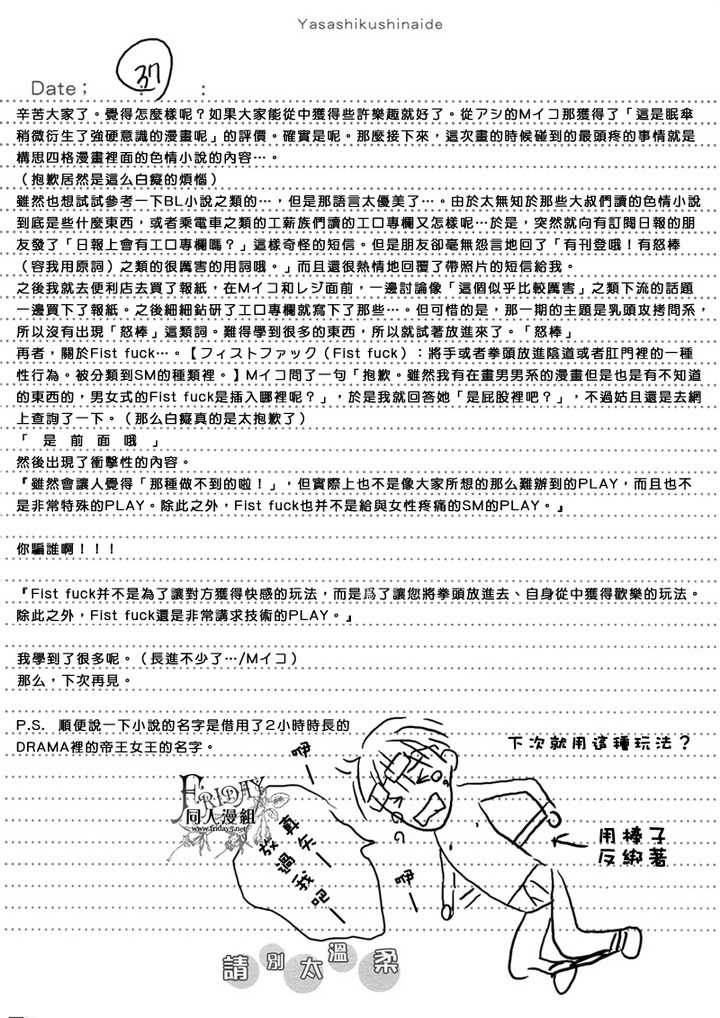 Yasashikushinaide
Date； 37 :
辛苦大家了。覺得怎麼樣呢？如果大家能從中獲得些許樂趣就好了。從アシのMイコ那獲得了「這是眠傘
稍微衍生了強硬意識的漫畫呢」的評價。確實是呢。那麼接下來，這次畫的時候碰到的最頭疼的事情就是
構思四格漫畫裡面的色情小說的內容…。
（抱歉居然是這么白癡的煩惱）
雖然也想試試參考一下BL小說之類的…，但是那語言太優美了…。由於太無知於那些大叔們讀的色情小說
到底是些什麼東西，或者乘電車之類的工薪族們讀的エロ專欄又怎樣呢…於是，突然就向有訂閱日報的朋
友發了「日報上會有エロ專欄嗎？」這樣奇怪的短信。但是朋友卻毫無怨言地回了「有刊登哦！有怒棒
（容我用原詞）之類的很厲害的用詞哦。」而且還很熱情地回覆了帶照片的短信給我。
之後我就去便利店去買了報紙，在Mイコ和レジ面前，一邊討論像「這個似乎比較厲害」之類下流的話題
一邊買下了報紙。之後細細鉆研了エロ專欄就寫下了那些…。但可惜的是，那一期的主題是乳頭攻拷問系，
所以沒有出現「怒棒」這類詞。難得學到很多的東西，所以就試著放進來了。「怒棒」
再者，關於Fist fuck…。【フィストファック（Fist fuck）：將手或者拳頭放進陰道或者肛門裡的一種
性行為。被分類到SM的種類裡。】Mイコ問了一句「抱歉。雖然我有在畫男男系的漫畫但是也是有不知道
的東西的，男女式的Fist fuck是插入哪裡呢？」，於是我就回答她「是屁股裡吧？」，不過姑且還是去網
上查詢了一下。（那么白癡真的是太抱歉了）
「 是 前 面 哦 」
然後出現了衝擊性的內容。
『雖然會讓人覺得「那種做不到的啦！」，但實際上也不是像大家所想的那么難辦到的PLAY，而且也不
是非常特殊的PLAY。除此之外，Fist fuck也并不是給與女性疼痛的SM的PLAY。』
你騙誰啊！！！
『Fist fuck并不是為了讓對方獲得快感的玩法，而是爲了讓您將拳頭放進去、自身從中獲得歡樂的玩法。
除此之外，Fist fuck還是非常講求技術的PLAY。』
我學到了很多呢。（長進不少了…/Mイコ）
那么，下次再見。
P.S. 順便說一下小說的名字是借用了2小時時長的
DRAMA裡的帝王女王的名字。
下次就用這種玩法？
用棒子
反綁著
咿ー
真矢ー
放過我吧ー
咿ー
FRIDAY
同人漫組
www.friday5.net
請別太溫柔